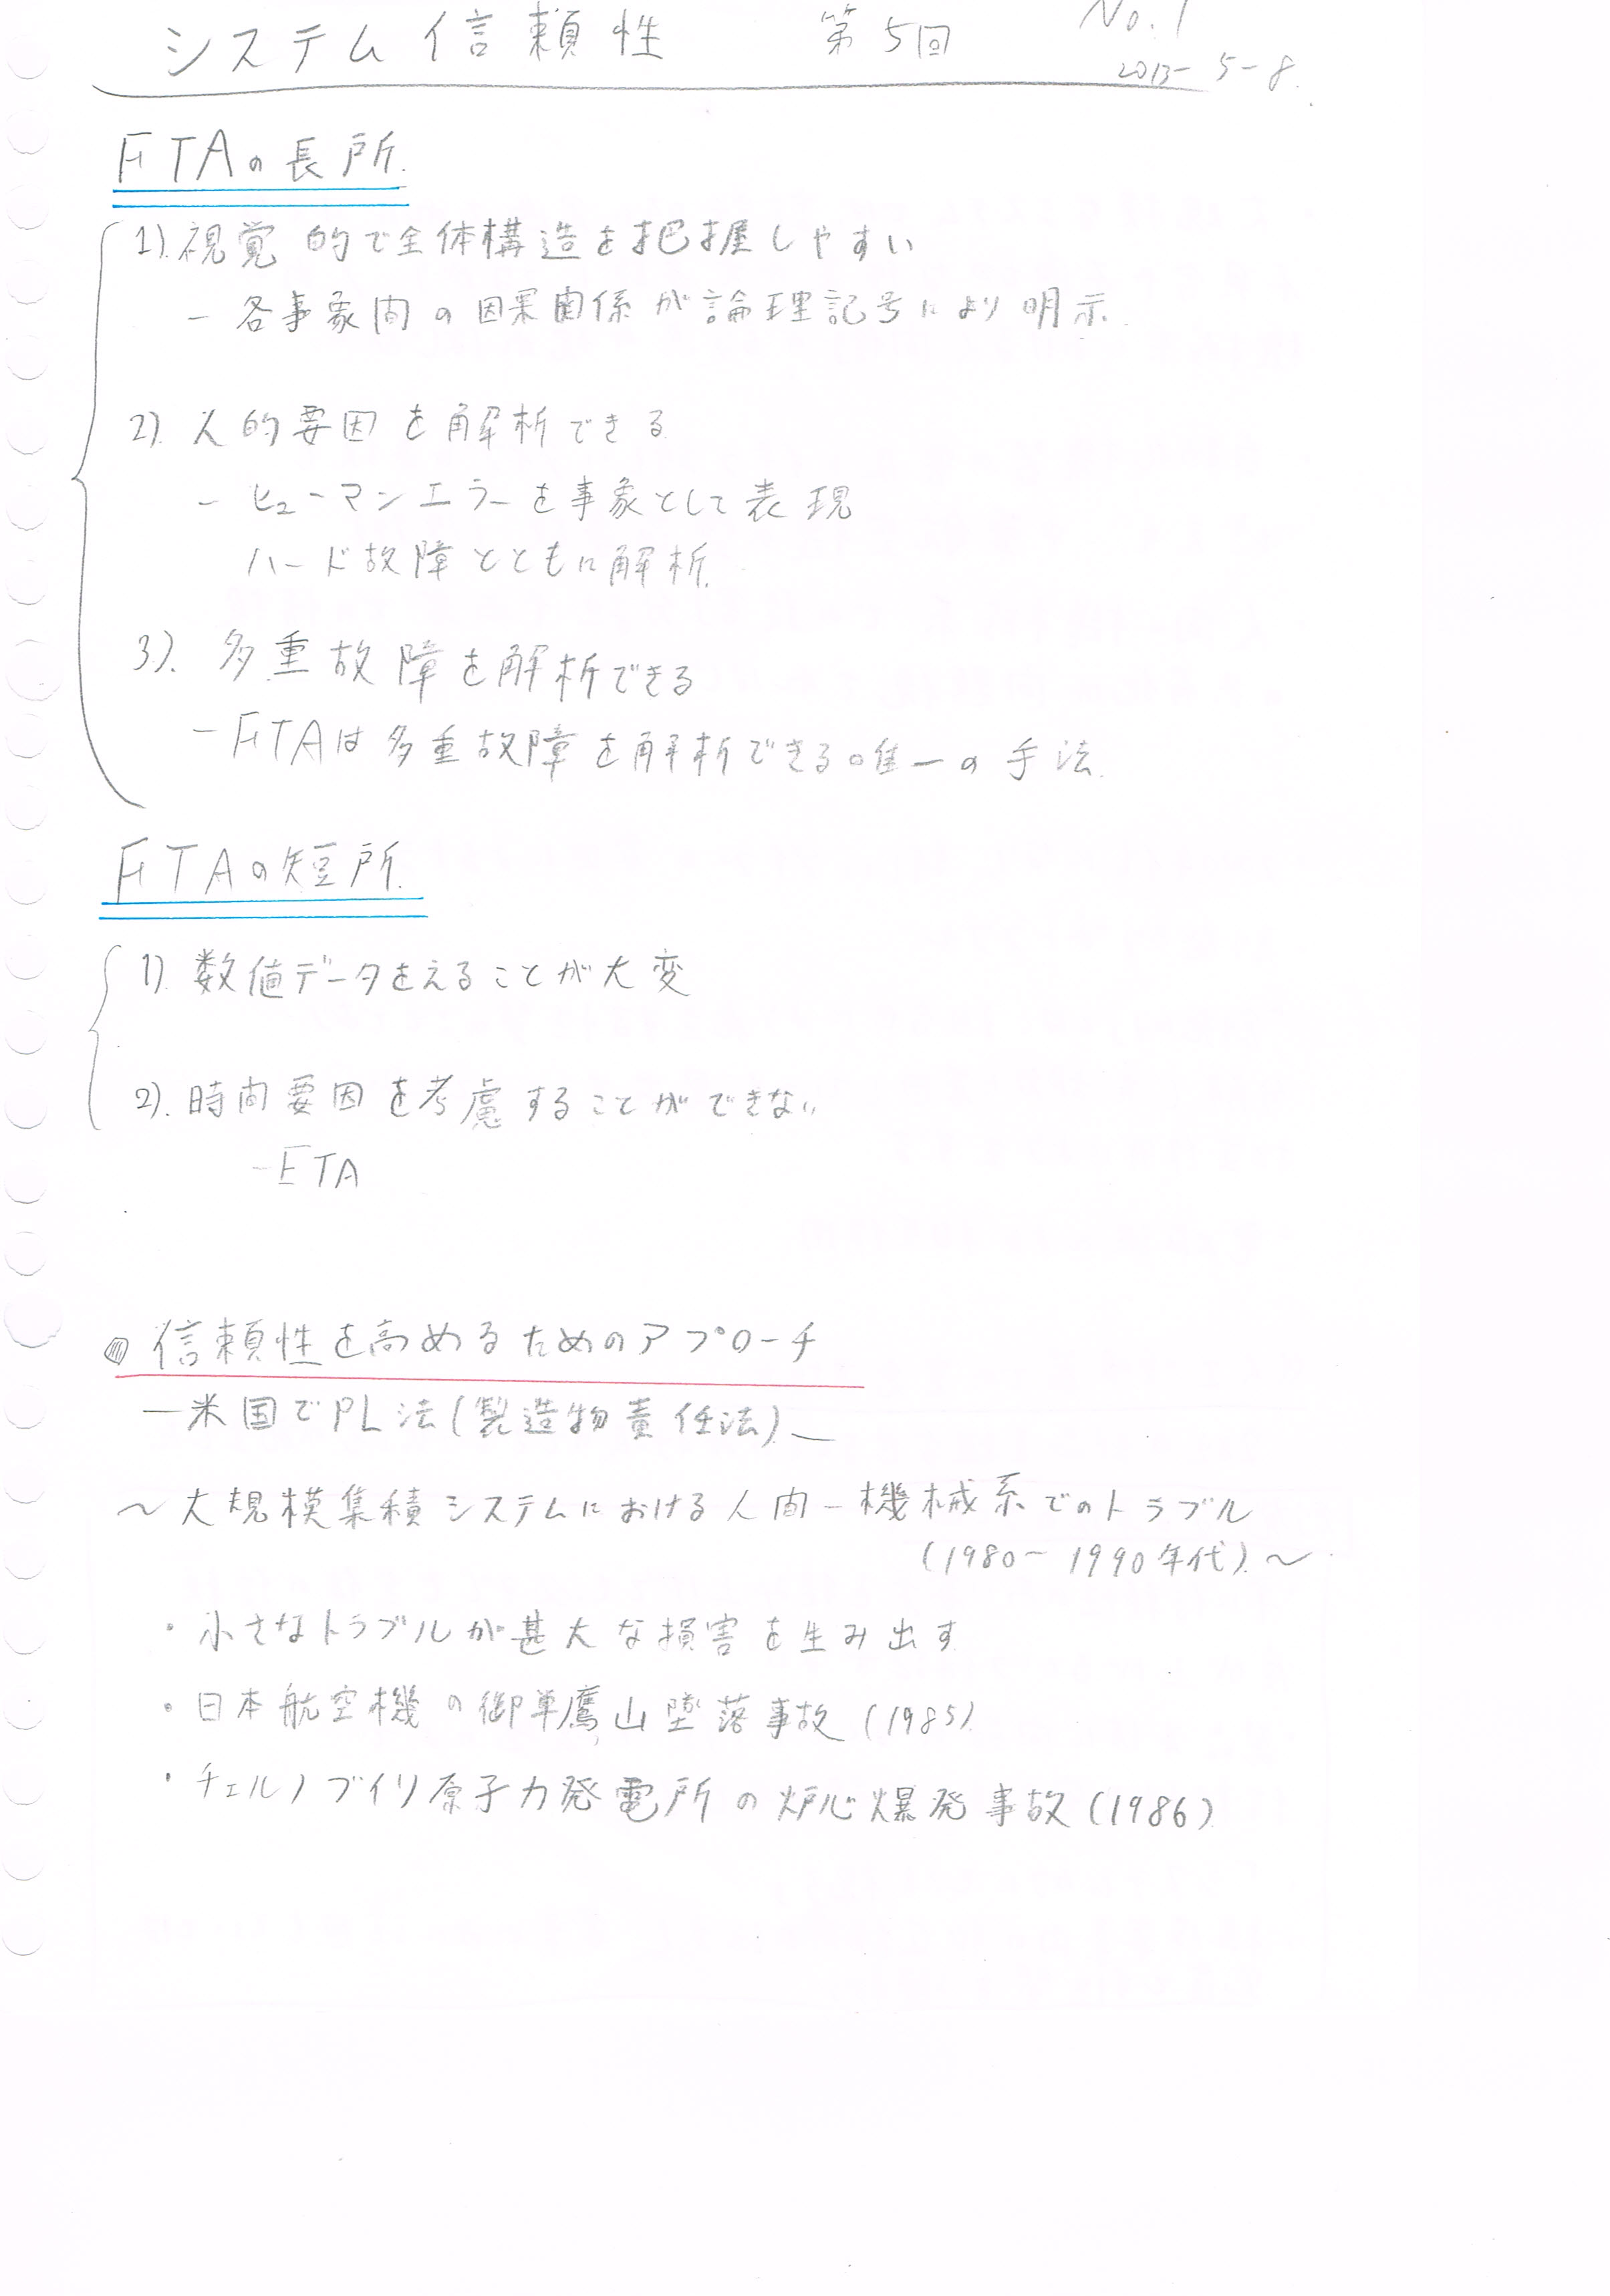 システム信頼性 第5回 No.1
2013-5-8
FTAの長所.
1). 視覚的で全体構造を把握しやすい
- 各事象間の因果関係が論理記号により明示.
2). 人的要因を解析できる
- ヒューマンエラーを事象として表現
ハード故障とともに解析.
3). 多重故障を解析できる
- FTAは多重故障を解析できる唯一の手法.
FTAの短所.
1). 数値データをえることが大変
2). 時間要因を考慮することができない
- ETA
信頼性を高めるためのアプローチ
- 米国でPL法(製造物責任法)
～大規模集積システムにおける人間-機械系でのトラブル
(1980～1990年代)～
・小さなトラブルが甚大な損害を生み出す
・日本航空機の御単鷹山墜落事故(1985)
・チェルノブイリ原子力発電所の炉心爆発事故(1986)